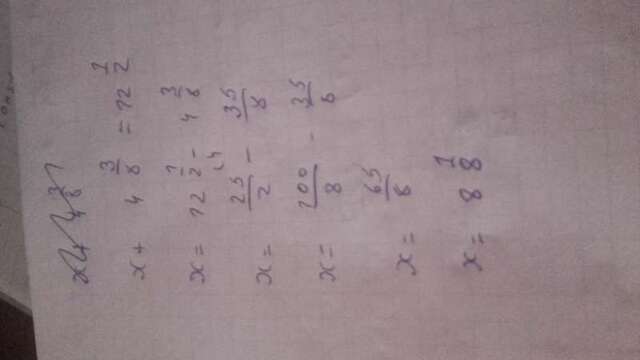 x + 4 3/8
x + 4 3/8 = 12 1/2
x = 12 1/2 - 4 3/8
x = 25/2 - 35/8
x = 100/8 - 35/8
x = 65/8
x = 8 1/8